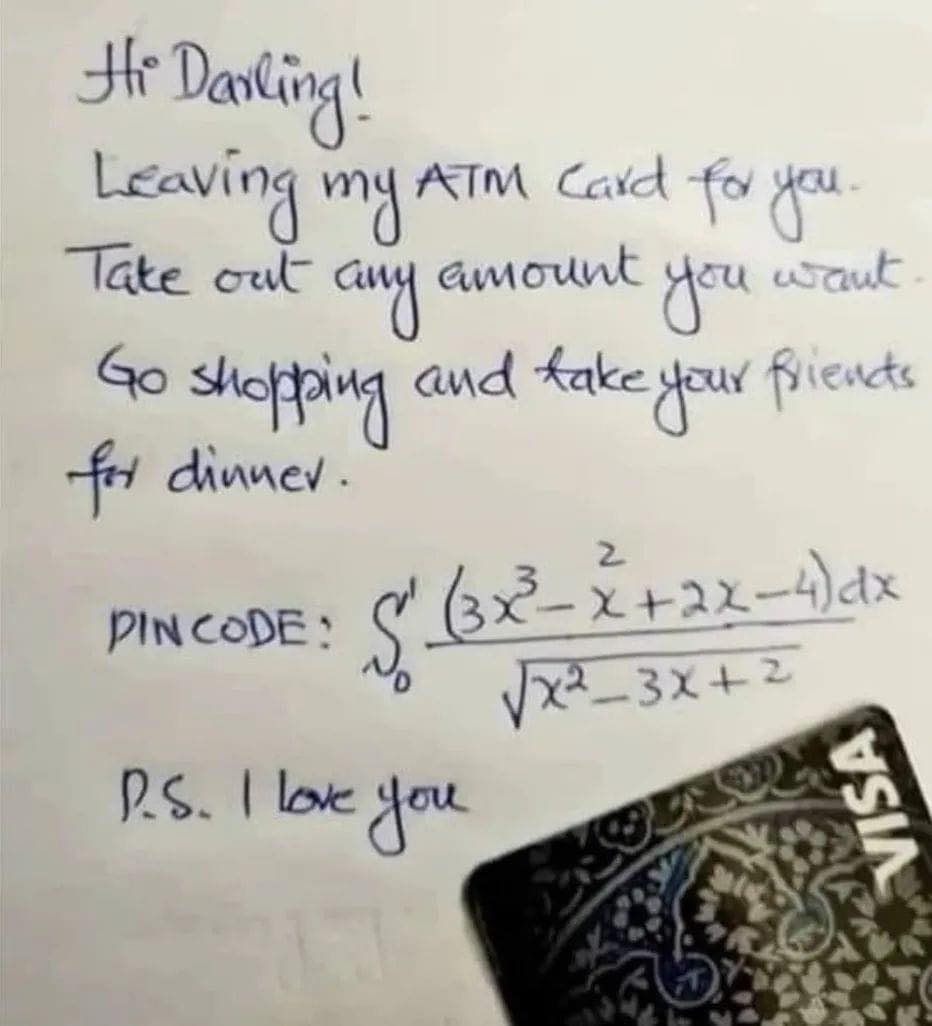 Hi Darling!
Leaving my ATM Card for you.
Take out any amount you want.
Go shopping and take your friends
for dinner.
PINCODE: ∫₀¹ (3x³-x²+2x-4)dx / √x²-3x+2
P.S. I love you
VISA